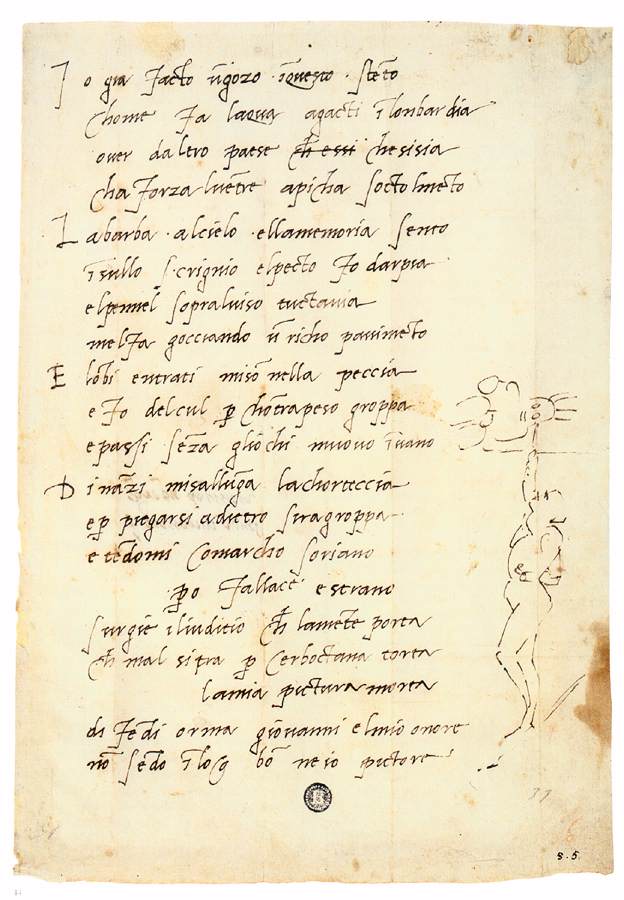 I o gia facto ūgozo īquesto stēto
chome fa laqua agacti ī lombardia
over daltro paese ch̄ essi chesisia
cha forza luētre apicha socto lmēto
L abarba alcielo ellamemoria sento
īsullo scrignio elpecto fo darpia
elpennel sopralviso tuctavia
melfa gocciando ū richo pavimēto
E lōbi entrati misō nella peccia
e fo delcul p̱ chōtrapeso groppa
epassi sēza gliochi muovo īvano
D ināzi misallūga lachorteccia
ep̱ piegarsi adietro siragroppa
e tēdomi comarcho soriano
p̱o fallace e strano
surgie iliuditio ch̄ lamēte porta
ch̄ mal sitra p̱ cerboctana torta
lamia pictura morta
difēdi orma giovanni elmio onore
nō sēdo īlog bō ne io pictore
s.5.